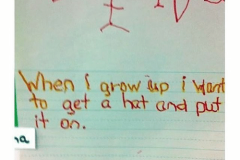 When i grow up i want
to get a hat and put
it on.